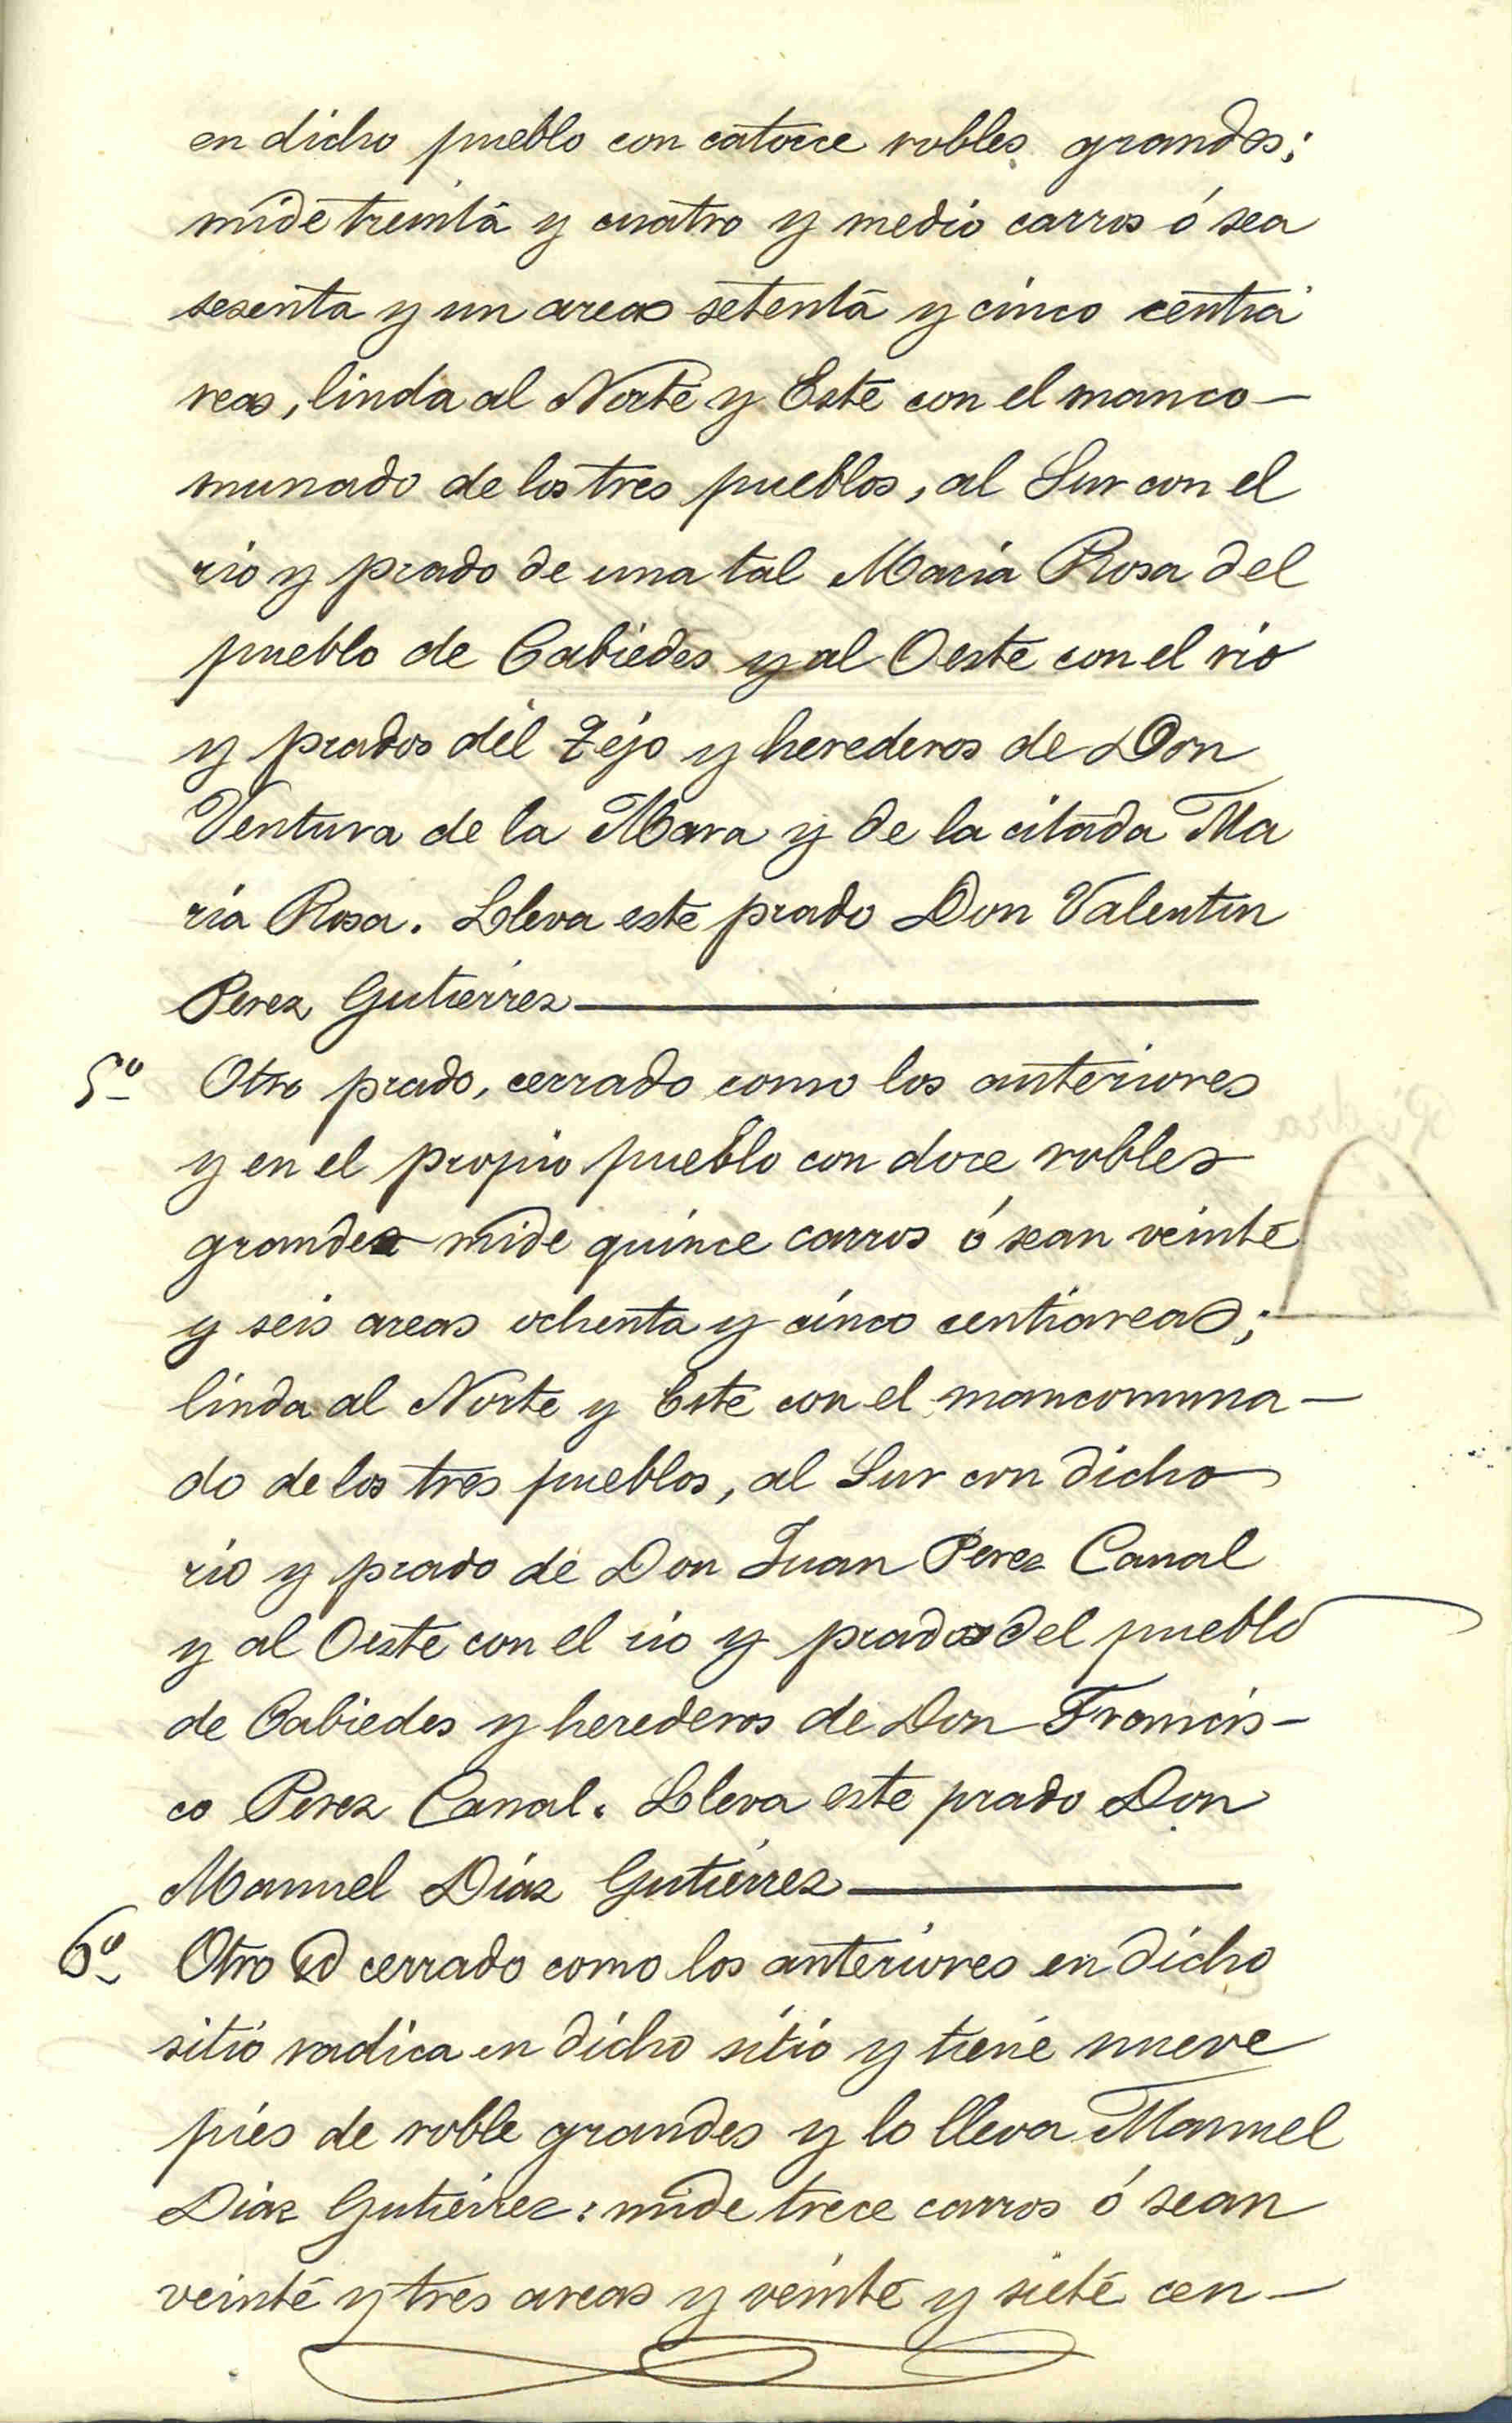 en dicho pueblo con catorce robles grandes;
mide treinta y cuatro y medio carros ó sea
sesenta y un areas setenta y cinco centia
reas, linda al Norte y Este con el manco-
munado de los tres pueblos, al Sur con el
rio y prado de una tal Maria Rosa del
pueblo de Cabiedes y al Oeste con el rio
y prados del Tejo y herederos de Don
Ventura de la Mara y de la citada Ma
ria Rosa. Lleva este prado Don Valentin
Perez Gutierrez
5º Otro prado, cerrado como los anteriores
y en el propio pueblo con doce robles
grandes mide quince carros ó sean veinte
y seis areas ochenta y cinco centiareas;
linda al Norte y Este con el mancomuna-
do de los tres pueblos, al Sur con dicho
rio y prado de Don Juan Perez Canal
y al Oeste con el rio y prados del pueblo
de Cabiedes y herederos de Don Francis-
co Perez Canal. Lleva este prado Don
Manuel Diaz Gutierrez
6º Otro id cerrado como los anteriores en dicho
sitio radica en dicho sitio y tiene nueve
pies de roble grandes y lo lleva Manuel
Diaz Gutierrez: mide trece carros ó sean
veinte y tres areas y veinte y siete cen-